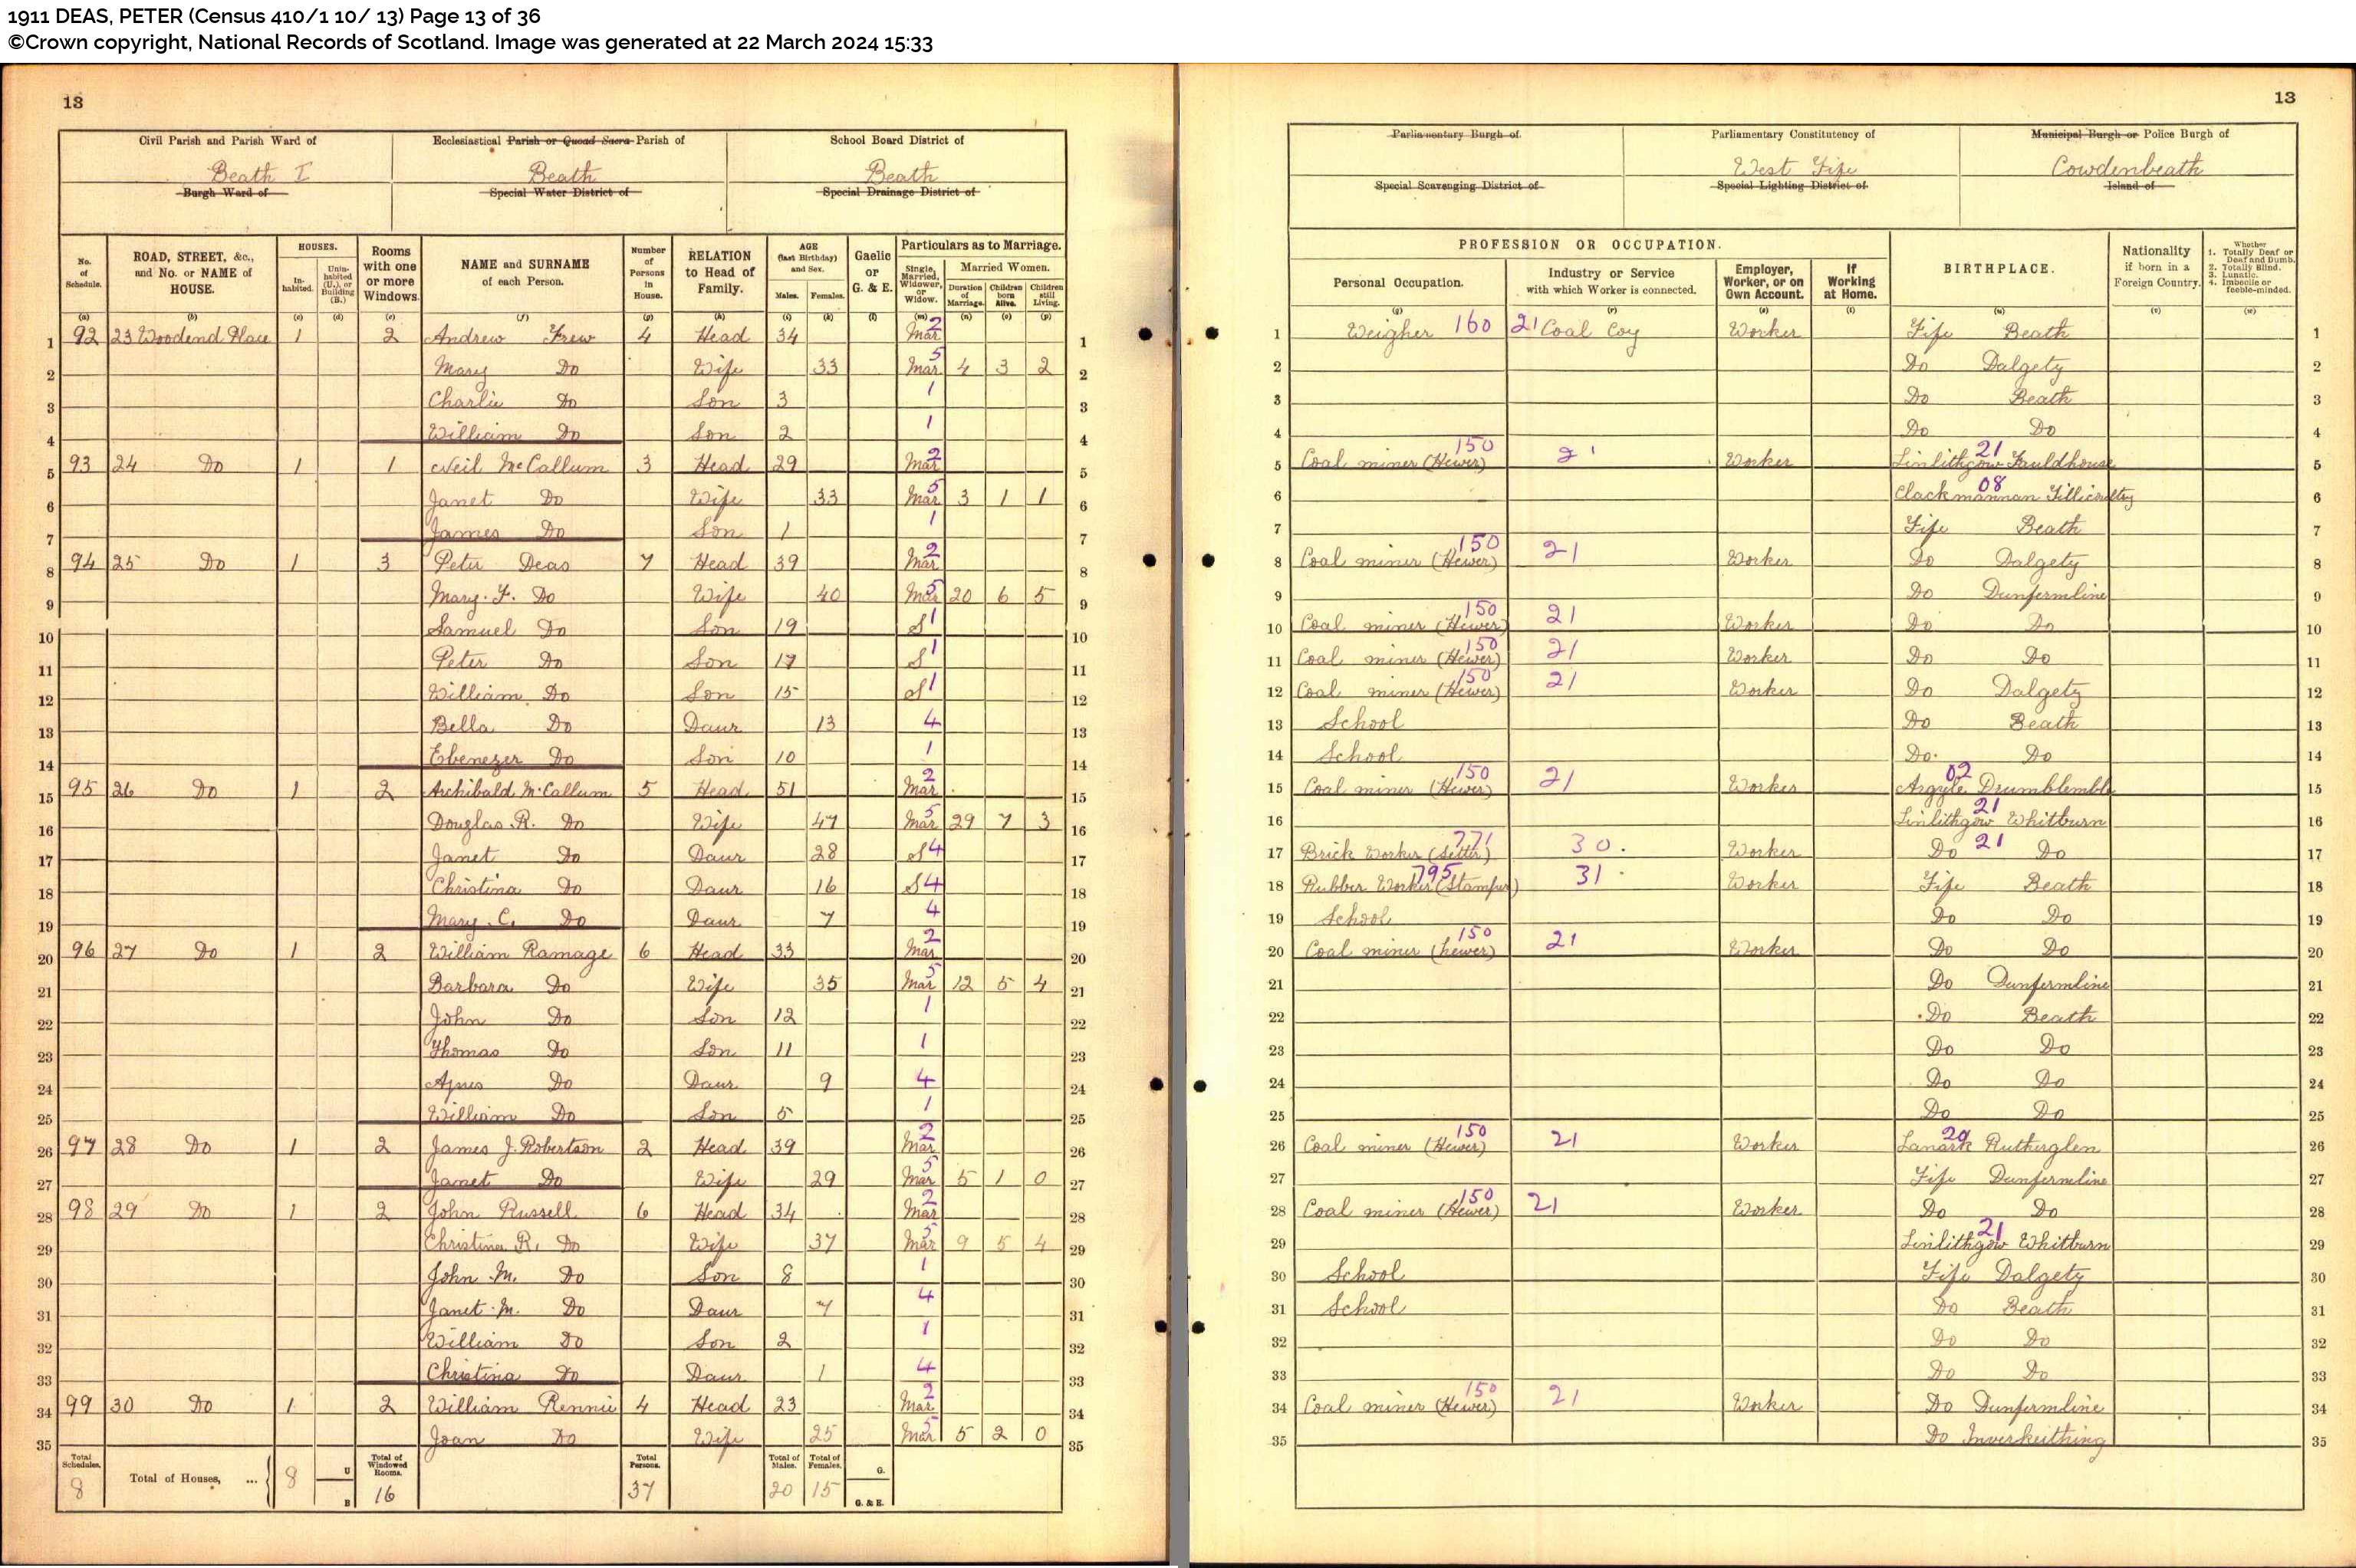 1911 DEAS, PETER (Census 410/1 10/ 13) Page 13 of 36
©Crown copyright, National Records of Scotland. Image was generated at 22 March 2024 15:33
13
Civil Parish and Parish Ward of Ecclesiastical Parish or Quoad Sacra Parish of School Board District of
Beath I Beath Beath
Burgh Ward of Special Water District of Special Drainage District of
No. of Schedule. ROAD, STREET, &c., and No. or NAME of HOUSE. HOUSES. Inhabited. Uninhabited (U.), or Building (B.) Rooms with one or more Windows. NAME and SURNAME of each Person. Number of Persons in House. RELATION to Head of Family. AGE (last Birthday) and Sex. Males. Females. Gaelic or G. & E. Particulars as to Marriage. Single, Married, Widower, or Widow. Married Women. Duration of Marriage. Children born Alive. Children still Living.
(a) (b) (c) (d) (e) (f) (g) (h) (i) (k) (l) (m) (n) (o) (p)
1 92 23 Woodend Place 1 2 Andrew Frew 4 Head 34 Mar 2 1
2 Mary Do Wife 33 Mar 5 4 3 2 2
3 Charlie Do Son 3 1 3
4 William Do Son 2 1 4
5 93 24 Do 1 1 Neil McCallum 3 Head 29 Mar 2 5
6 Janet Do Wife 33 Mar 5 3 1 1 6
7 James Do Son 1 1 7
8 94 25 Do 1 3 Peter Deas 7 Head 39 Mar 2 8
9 Mary. F. Do Wife 40 Mar 5 20 6 5 9
10 Samuel Do Son 19 S 1 10
11 Peter Do Son 17 S 1 11
12 William Do Son 15 S 1 12
13 Bella Do Daur 13 4 13
14 Ebenezer Do Son 10 1 14
15 95 26 Do 1 2 Archibald McCallum 5 Head 51 Mar 2 15
16 Douglas R. Do Wife 47 Mar 5 29 7 3 16
17 Janet Do Daur 28 S 4 17
18 Christina Do Daur 16 S 4 18
19 Mary. C. Do Daur 7 4 19
20 96 27 Do 1 2 William Ramage 6 Head 33 Mar 2 20
21 Barbara Do Wife 35 Mar 5 12 5 4 21
22 John Do Son 12 1 22
23 Thomas Do Son 11 1 23
24 Agnes Do Daur 9 4 24
25 William Do Son 5 1 25
26 97 28 Do 1 2 James J. Robertson 2 Head 39 Mar 2 26
27 Janet Do Wife 29 Mar 5 5 1 0 27
28 98 29 Do 1 2 John Russell 6 Head 34 Mar 2 28
29 Christina R. Do Wife 37 Mar 5 9 5 4 29
30 John M. Do Son 8 1 30
31 Janet M. Do Daur 7 4 31
32 William Do Son 2 1 32
33 Christina Do Daur 1 4 33
34 99 30 Do 1 2 William Rennie 4 Head 23 Mar 2 34
35 Joan Do Wife 25 Mar 5 5 2 0 35
Total Schedules. 8 Total of Houses, ... 8 U B Total of Windowed Rooms. 16 Total Persons. 37 Total of Males. 20 Total of Females. 15 G. G. & E.
13
Parliamentary Burgh of Parliamentary Constitutency of Municipal Burgh or Police Burgh of
West Fife Cowdenbeath
Special Scavenging District of Special Lighting District of Island of
PROFESSION OR OCCUPATION. Personal Occupation. Industry or Service with which Worker is connected. Employer, Worker, or on Own Account. If Working at Home. BIRTHPLACE. Nationality if born in a Foreign Country. Whether 1. Totally Deaf or Deaf and Dumb. 2. Totally Blind. 3. Lunatic. 4. Imbecile or feeble-minded.
(q) (r) (s) (t) (u) (v) (w)
1 Weigher 160 21 Coal Coy Worker Fife Beath 1
2 Do Dalgety 2
3 Do Beath 3
4 Do Do 4
5 Coal miner (Hewer) 150 21 Worker Linlithgow 21 Fauldhouse 5
6 Clackmannan 08 Tillicoultry 6
7 Fife Beath 7
8 Coal miner (Hewer) 150 21 Worker Do Dalgety 8
9 Do Dunfermline 9
10 Coal miner (Hewer) 150 21 Worker Do Do 10
11 Coal miner (Hewer) 150 21 Worker Do Do 11
12 Coal miner (Hewer) 150 21 Worker Do Dalgety 12
13 School Do Beath 13
14 School Do Do 14
15 Coal miner (Hewer) 150 21 Worker Argyle 02 Drumblemble 15
16 Linlithgow 21 Whitburn 16
17 Brick Worker (Setter) 771 30 Worker Do 21 Do 17
18 Rubber Worker (Stamper) 795 31 Worker Fife Beath 18
19 School Do Do 19
20 Coal miner (hewer) 150 21 Worker Do Do 20
21 Do Dunfermline 21
22 Do Beath 22
23 Do Do 23
24 Do Do 24
25 Do Do 25
26 Coal miner (Hewer) 150 21 Worker Lanark 20 Rutherglen 26
27 Fife Dunfermline 27
28 Coal miner (Hewer) 150 21 Worker Do Do 28
29 Linlithgow 21 Whitburn 29
30 School Fife Dalgety 30
31 School Do Beath 31
32 Do Do 32
33 Do Do 33
34 Coal miner (Hewer) 150 21 Worker Do Dunfermline 34
35 Do Inverkeithing 35